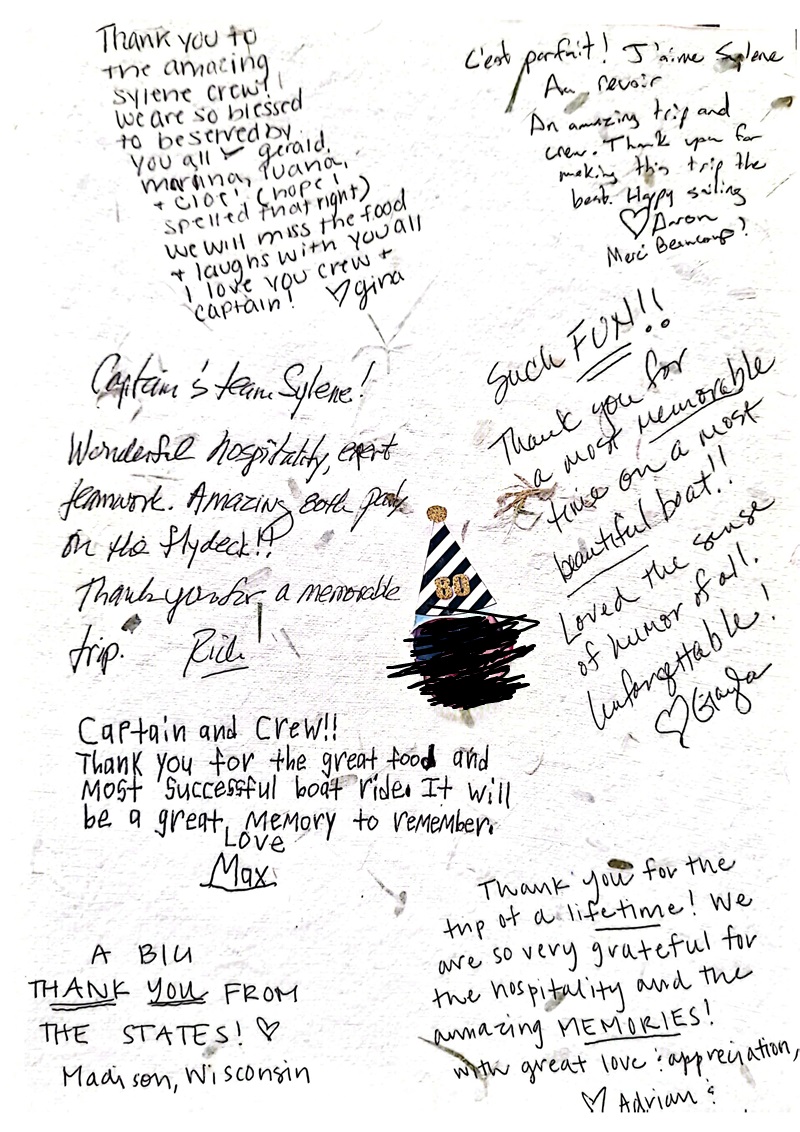 Thank you to
the amazing
sylene crew!!
we are so blessed
to be served by
you all - gerald,
marina, Iuana,
+ cloe! (hope I
spelled that right)
we will miss the food
+ laughs with you all
I love you crew +
captain! ♡ gina
C'est parfait! J'aime Sylene
Au revoir
An amazing trip and
crew. Thank you for
making this trip the
best. Happy sailing
♡ Aaron
Merci Beaucoup!
Captain's team Sylene!
Wonderful hospitality, expert
teamwork. Amazing 80th party
on the flydeck!!
Thank you for a memorable
trip. Rich
Such FUN!!
Thank you for
a most memorable
time on a most
beautiful boat!!
Loved the sense
of humor of all.
Unforgettable!
♡
80
Captain and Crew!!
Thank you for the great food and
Most Successful boat ride. It will
be a great Memory to remember.
Love
Max
A BIG
THANK YOU FROM
THE STATES! ♡
Madison, Wisconsin
Thank you for the
trip of a lifetime! We
are so very grateful for
the hospitality and the
amazing MEMORIES!
with great love & appreciation,
♡ Adrian &